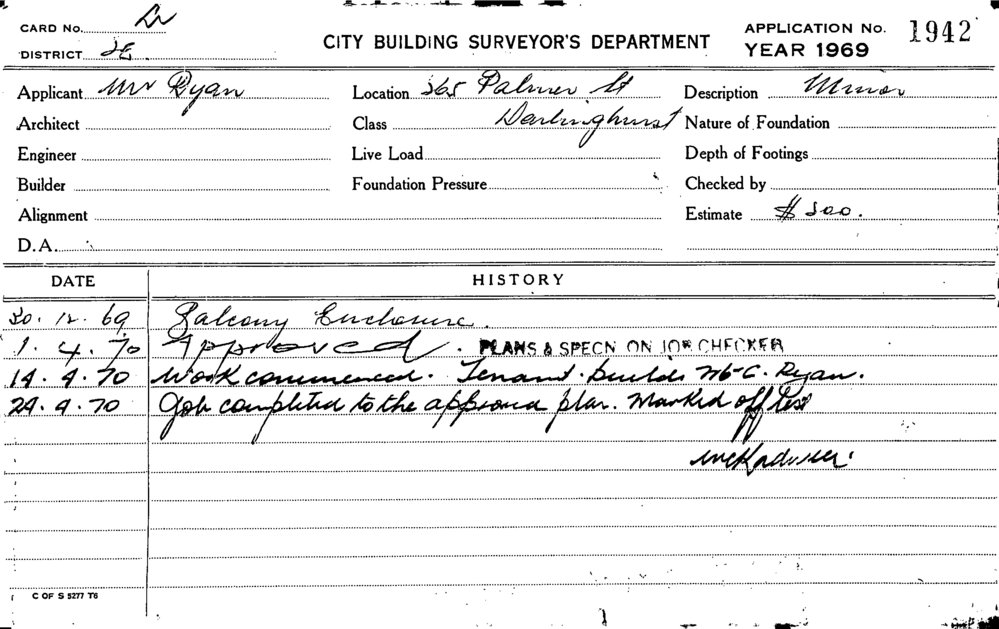 CARD No.
CITY BUILDING SURVEYOR'S DEPARTMENT
APPLICATION No. 1942
YEAR 1969
DISTRICT 2E.
Applicant Mr Ryan
Location 365 Palmer St
Description Minor
Architect
Class Darlinghurst
Nature of Foundation
Engineer
Live Load
Depth of Footings
Builder
Foundation Pressure
Checked by
Alignment
Estimate $200.
D.A.
DATE HISTORY
30. 12. 69 Balcony Enclosure.
1. 4. 70 Approved. PLANS & SPECN ON JOB CHECKER
14. 4. 70 Work commenced. Tenant. Builds Ryan.
29. 4. 70 Job completed to the approved plan. Marked off
C OF S 5277 T6